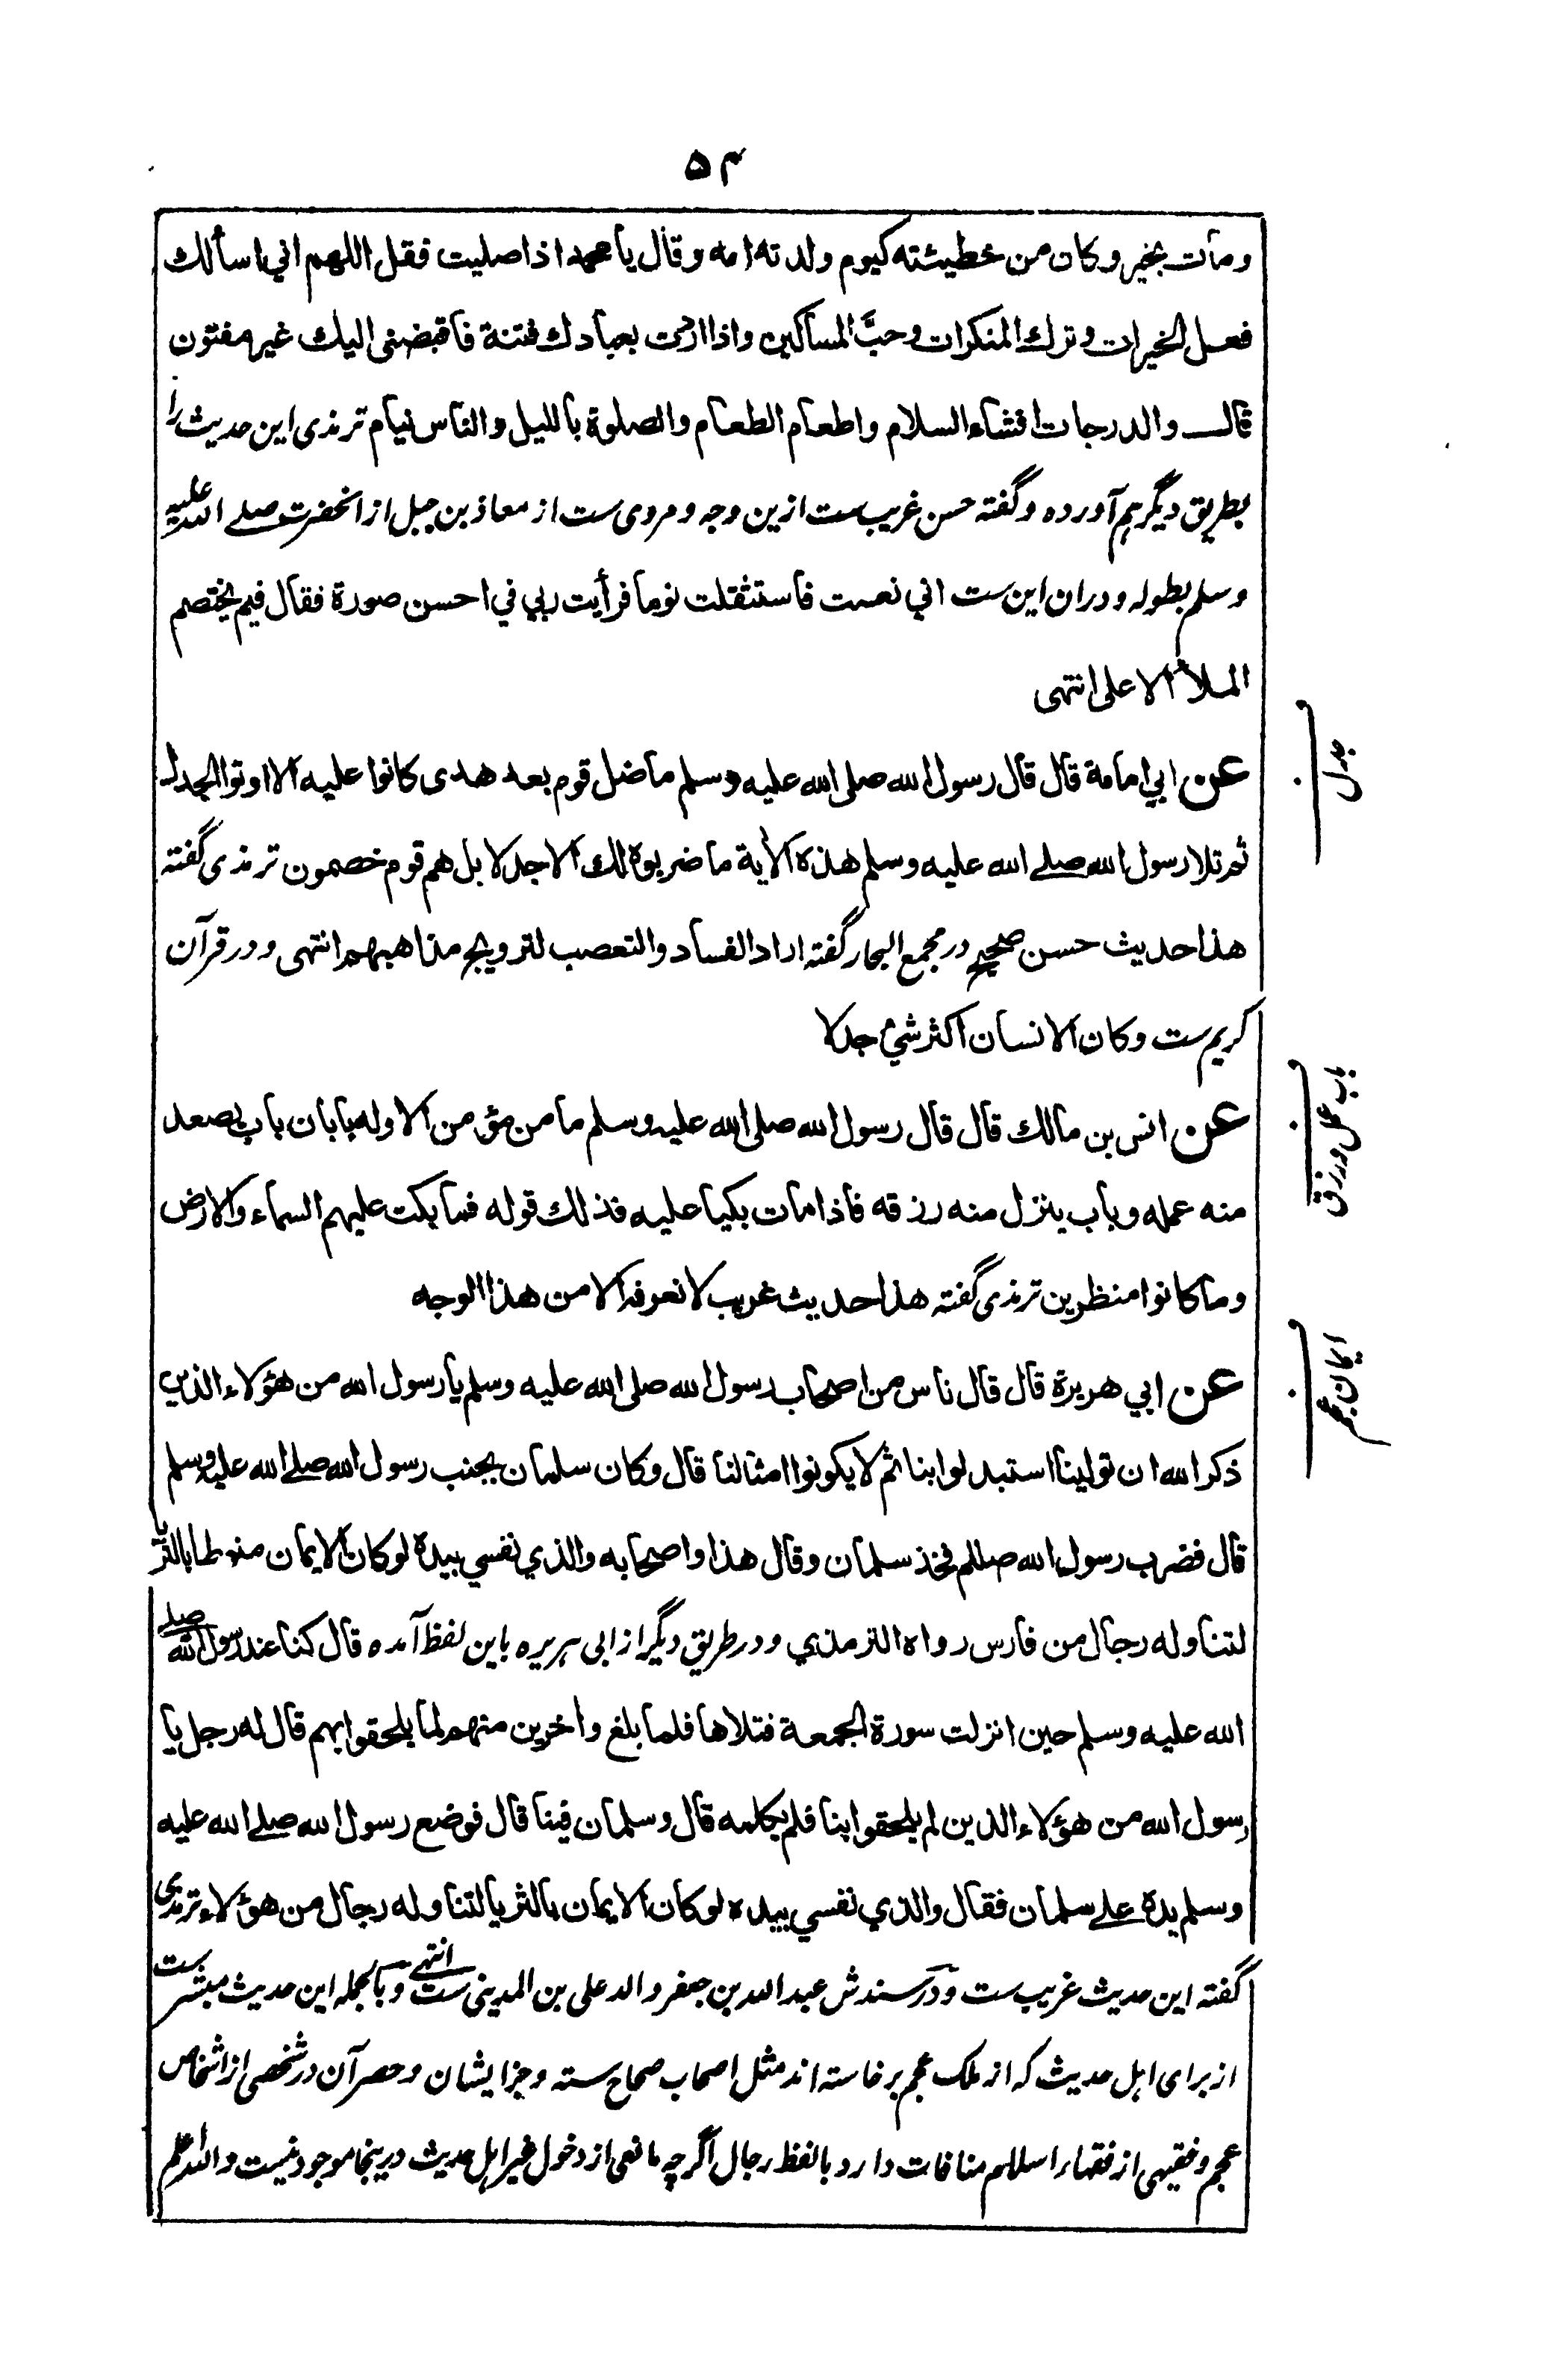 ۵۴
ومات بخير وكان من خطيئته كيوم ولدته امه وقال يا محمد اذا صليت فقل اللهم اني اسألك
فعل الخيرات وترك المنكرات وحبَّ المساكين واذا اردت بعبادك فتنة فاقبضني اليك غير مفتون
قال والدرجات افشاء السلام واطعام الطعام والصلوة بالليل والناس نيام ترمذی این حدیث را
بطریق دیگر هم آورده و گفته حسن غریب ست ازین وجه و مروی ست از معاذ بن جبل از انحضرت صلے الله علیه
وسلم بطوله ودران این ست اني نعست فاستثقلت نوما فرأيت ربي في احسن صورة فقال فيم يختصم
الملأ الاعلى انتهى
جدل
عن ابي امامة قال قال رسول الله صلى الله عليه وسلم ما ضل قوم بعد هدى كانوا عليه الا اوتوا الجدل
ثم تلا رسول الله صلے الله عليه وسلم هذه الأية ما ضربوه لك الا جدلا بل هم قوم خصمون ترمذی گفته
هذا حديث حسن صحيح در مجمع البحار گفته اراد الفساد والتعصب لترويج مذاهبهم انتهى ودر قرآن
کریم ست وكان الانسان اكثر شيء جدلا
باب عمل ورزق
عن انس بن مالك قال قال رسول الله صلى الله عليه وسلم ما من مؤمن الا وله بابان باب يصعد
منه عمله وباب ينزل منه رزقه فاذا مات بكيا عليه فذلك قوله فما بكت عليهم السماء والارض
وما كانوا منظرين ترمذی گفته هذا حديث غريب لا نعرفه الا من هذا الوجه
ایمان عجم
عن ابي هريرة قال قال ناس من اصحاب رسول الله صلى الله عليه وسلم يا رسول الله من هؤلاء الذين
ذكر الله ان تولينا استبدلوا بنا ثم لا يكونوا امثالنا قال وكان سلمان بجنب رسول الله صلے الله عليه وسلم
قال فضرب رسول الله صللم فخذ سلمان وقال هذا واصحابه والذي نفسي بيده لو كان الايمان منوطا بالثريا
لتناوله رجال من فارس رواه الترمذي ودر طریق دیگر از ابی ہریرہ باین لفظ آمده قال كنا عند رسول الله صلے
الله عليه وسلم حين انزلت سورة الجمعة فتلاها فلما بلغ وأخرين منهم لما يلحقوا بهم قال له رجل يا
رسول الله من هؤلاء الذين لم يلحقوا بنا فلم يكلمه قال وسلمان فينا قال فوضع رسول الله صلے الله عليه
وسلم يده علے سلمان فقال والذي نفسي بيده لو كان الايمان بالثريا لتناوله رجال من هؤلاء ترمذی
گفته این حدیث غریب ست ودر سندش عبد الله بن جعفر والد علی بن المدینی ست انتہے وبالجمله این حدیث مبشر ست
از برای اہل حدیث که از ملک عجم برخاسته اند مثل اصحاب صحاح سته وجز ایشان وحصر آن در شخصی از اشخاص
عجم وفقیهی از فقهاء اسلام منافات دارد بالفظ رجال اگرچه مانعی از دخول غیر اہل حدیث درینجا موجود نیست والله اعلم